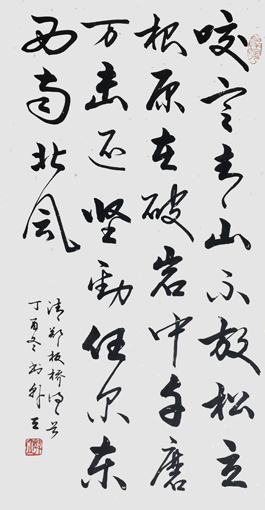 咬定青山不放松立
根原在破岩中千磨
万击还坚劲任尔东
西南北风
清郑板桥
丁酉冬